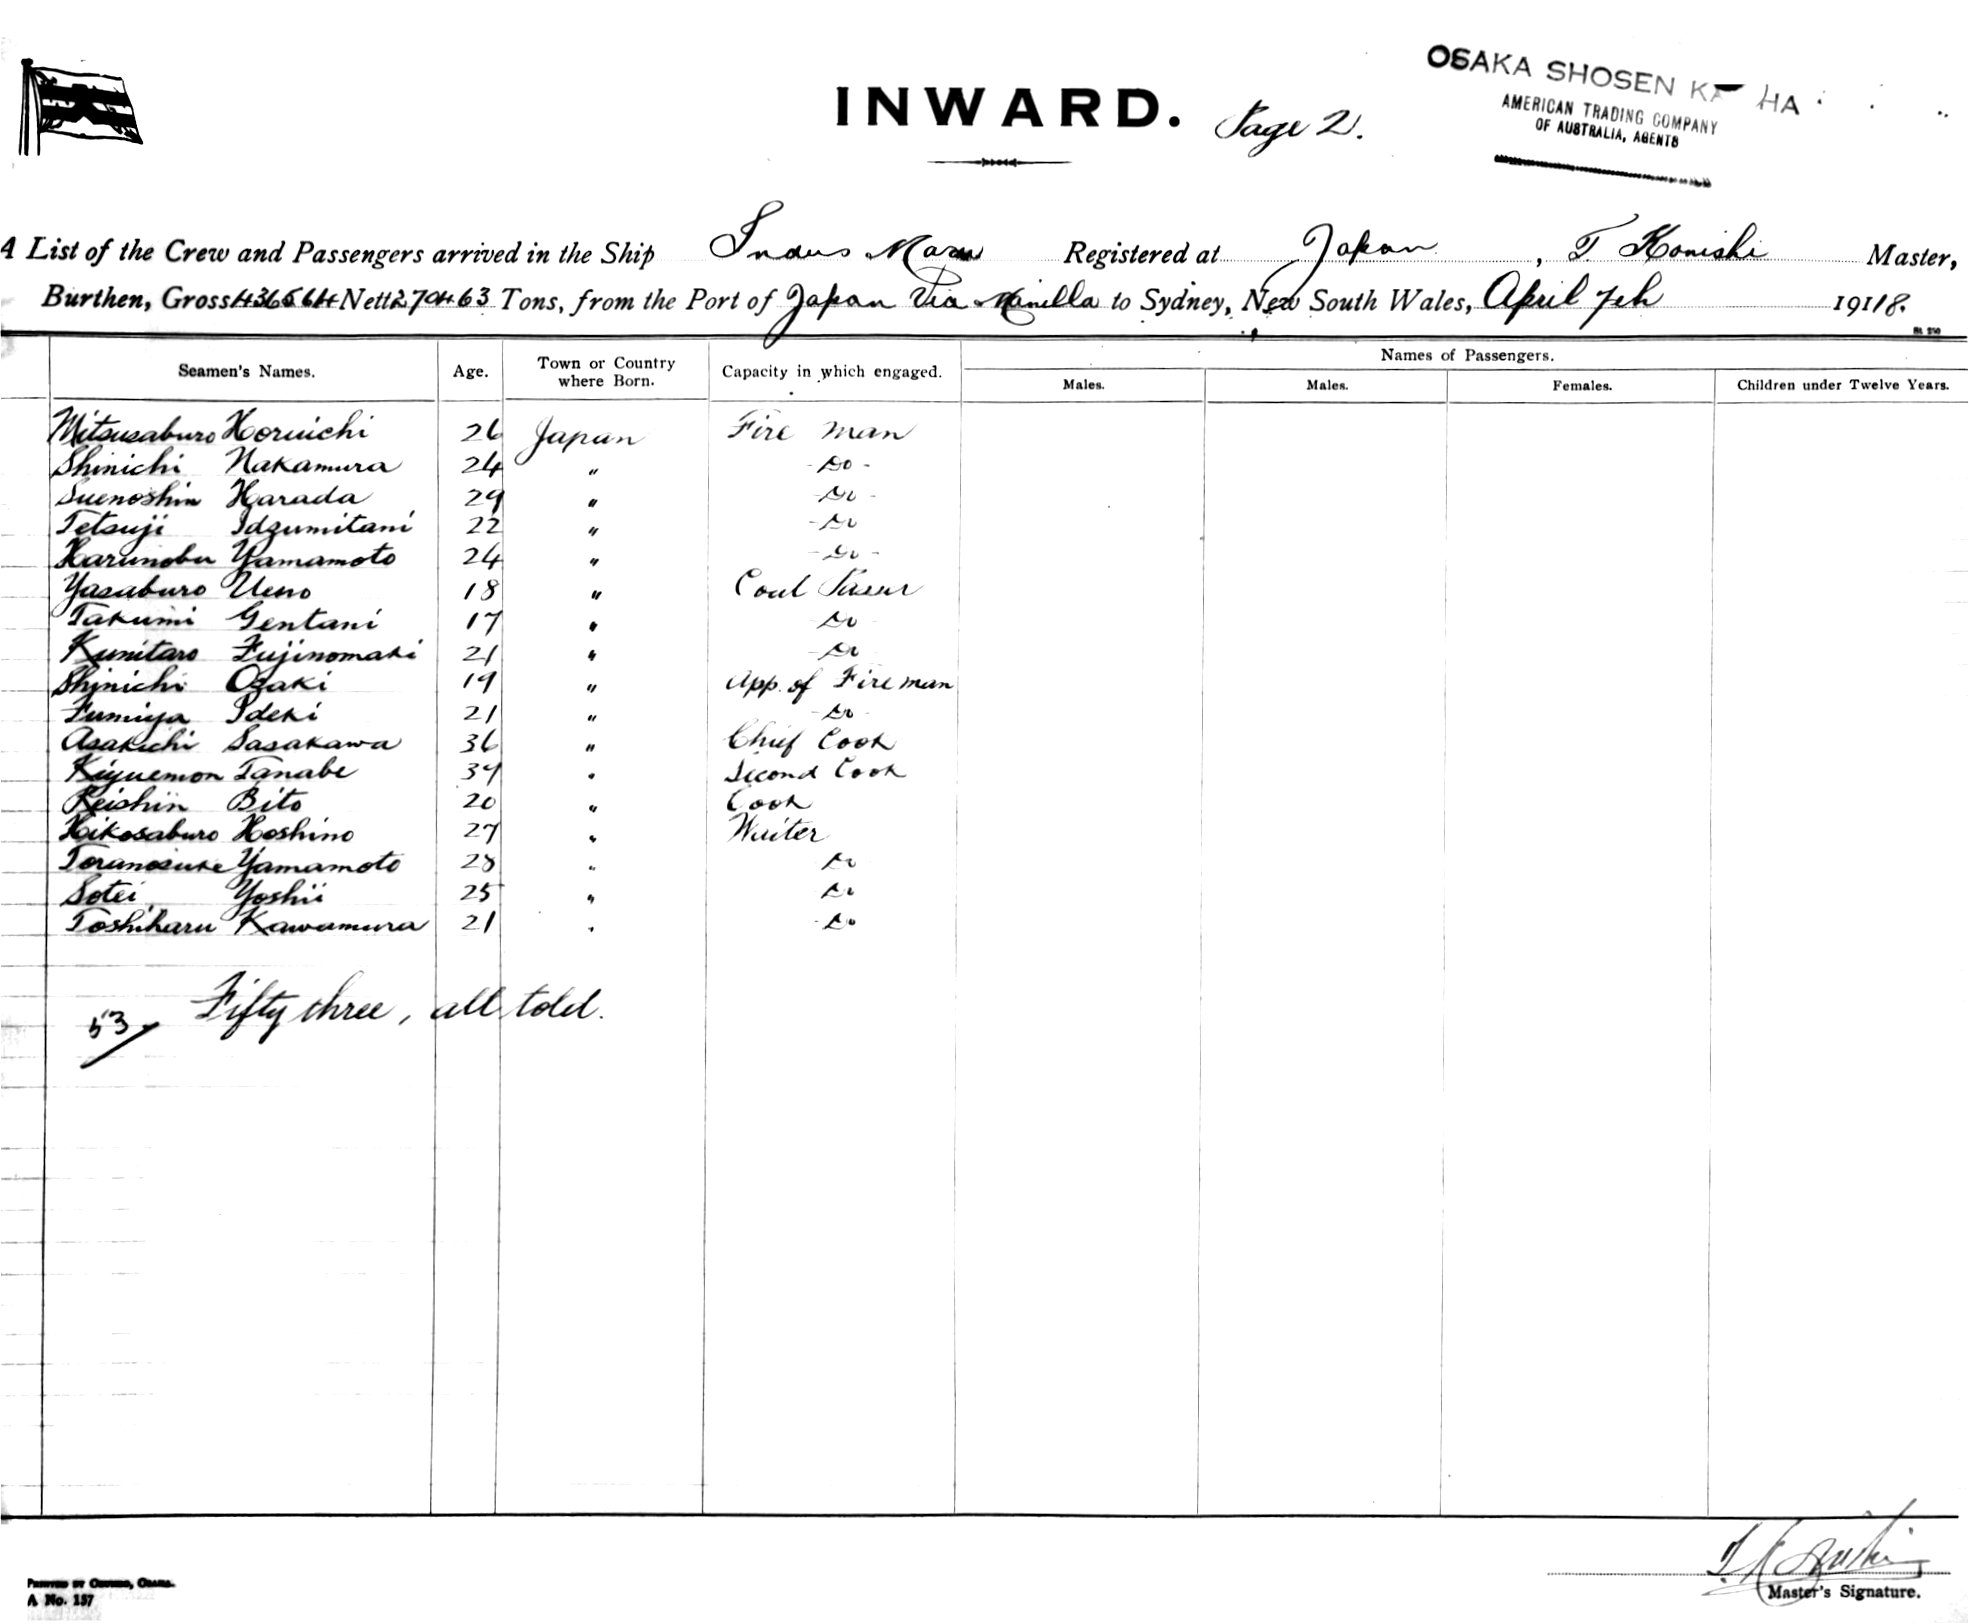 INWARD. Page 2.
OSAKA SHOSEN
AMERICAN TRADING COMPANY
OF AUSTRALIA, AGENTS
A List of the Crew and Passengers arrived in the Ship Indus Maru Registered at Japan, T Konishi Master,
Burthen, Gross 4365 64 Nett 2704 63 Tons, from the Port of Japan Via Manilla to Sydney, New South Wales, April 7th 1918.
Names of Passengers.
Seamen's Names. Age. Town or Country where Born. Capacity in which engaged. Males. Males. Females. Children under Twelve Years.
Mitsusaburo Horiuichi 26 Japan Fire man
Shinichi Nakamura 24 " -Do-
Suenoshin Harada 29 " -Do-
Tetsuji Idzumitani 22 " -Do
Harunobu Yamamoto 24 " -Do-
Yasaburo Ueno 18 " Coal Passer
Takumi Gentani 17 " Do
Kunitaro Fujinomaki 21 " -Do
Shinichi Ozaki 19 " App. of Fireman
Fumiya Ideki 21 " -Do-
Asakichi Sasakawa 36 " Chief Cook
Kiyuemon Tanabe " Second Cook
Keishin Bito 20 " Cook
Hikosaburo Hoshino 27 " Waiter
Toranosuke Yamamoto 28 " Do
Sotei Yoshii 25 " Do
Toshiharu Kawamura 21 " -Do
53 Fifty three, all told.
Master's Signature.
A No. 157